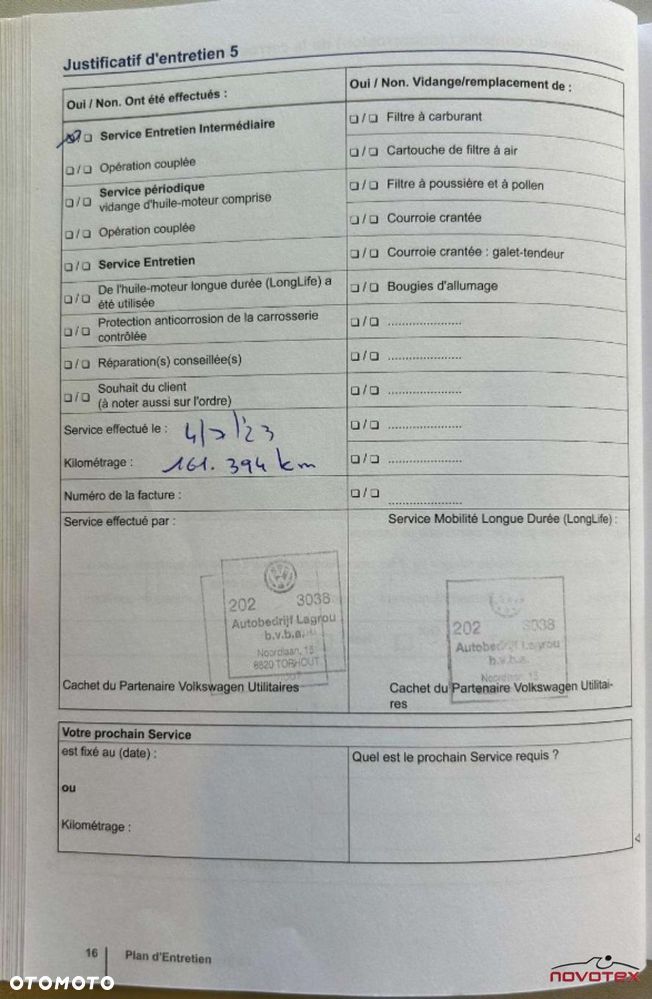 Justificatif d'entretien 5
Oui / Non. Ont été effectués :
❑ Service Entretien Intermédiaire
❑ / ❑ Opération couplée
❑ / ❑ Service périodique
vidange d'huile-moteur comprise
❑ / ❑ Opération couplée
❑ / ❑ Service Entretien
❑ / ❑ De l'huile-moteur longue durée (LongLife) a
été utilisée
❑ / ❑ Protection anticorrosion de la carrosserie
contrôlée
❑ / ❑ Réparation(s) conseillée(s)
❑ / ❑ Souhait du client
(à noter aussi sur l'ordre)
Service effectué le : 4/7/'23
Kilométrage : 161.394 km
Numéro de la facture :
Oui / Non. Vidange/remplacement de :
❑ / ❑ Filtre à carburant
❑ / ❑ Cartouche de filtre à air
❑ / ❑ Filtre à poussière et à pollen
❑ / ❑ Courroie crantée
❑ / ❑ Courroie crantée : galet-tendeur
❑ / ❑ Bougies d'allumage
❑ / ❑ .....................
❑ / ❑ .....................
❑ / ❑ .....................
❑ / ❑ .....................
❑ / ❑ .....................
❑ / ❑ .....................
Service effectué par :
202 3038
Autobedrijf Lagrou
b.v.b.a.
Noordlaan, 15
8820 TORHOUT
Cachet du Partenaire Volkswagen Utilitaires
Service Mobilité Longue Durée (LongLife) :
202 3038
Autobedrijf Lagrou
b.v.b.a.
Noordlaan, 15
Cachet du Partenaire Volkswagen Utilitai-
res
Votre prochain Service
est fixé au (date) :
ou
Kilométrage :
Quel est le prochain Service requis ?
16 Plan d'Entretien
OTOMOTO
NOVOTEX